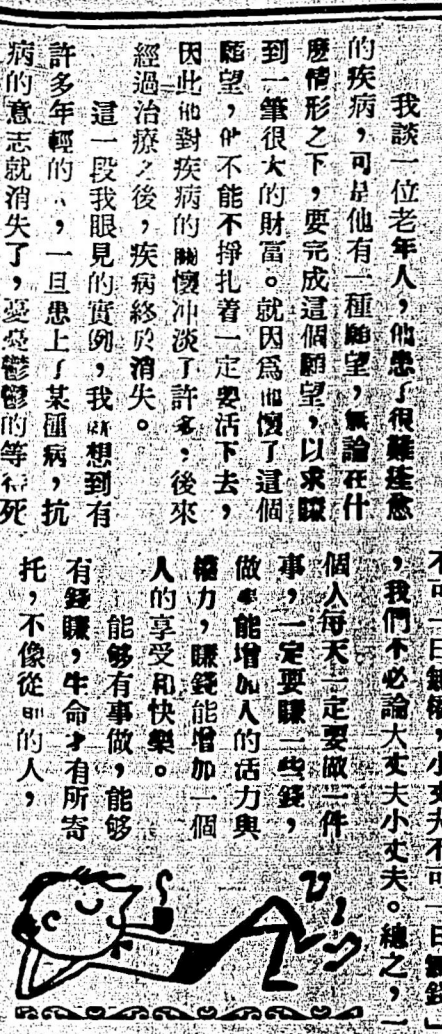 我談一位老年人，他患了很難痊愈
的疾病，可是他有一種願望，無論在什
麽情形之下，要完成這個願望，以求賺
到一筆很大的財富。就因爲他懷了這個
願望，他不能不掙扎着一定要活下去，
因此他對疾病的關懷冲淡了許多，後來
經過治療之後，疾病終於消失。
這一段我眼見的實例，我就想到有
許多年輕的人，一旦患上了某種病，抗
病的意志就消失了，憂憂鬱鬱的等待死
不可一日無權，小丈夫不可一日無錢」
，我們不必論大丈夫小丈夫。總之，一
個人每天一定要做一件
事，一定要賺一些錢，
做事能增加人的活力與
權力，賺錢能增加一個
人的享受和快樂。
能够有事做，能够
有錢賺，生命才有所寄
托，不像從前的人，